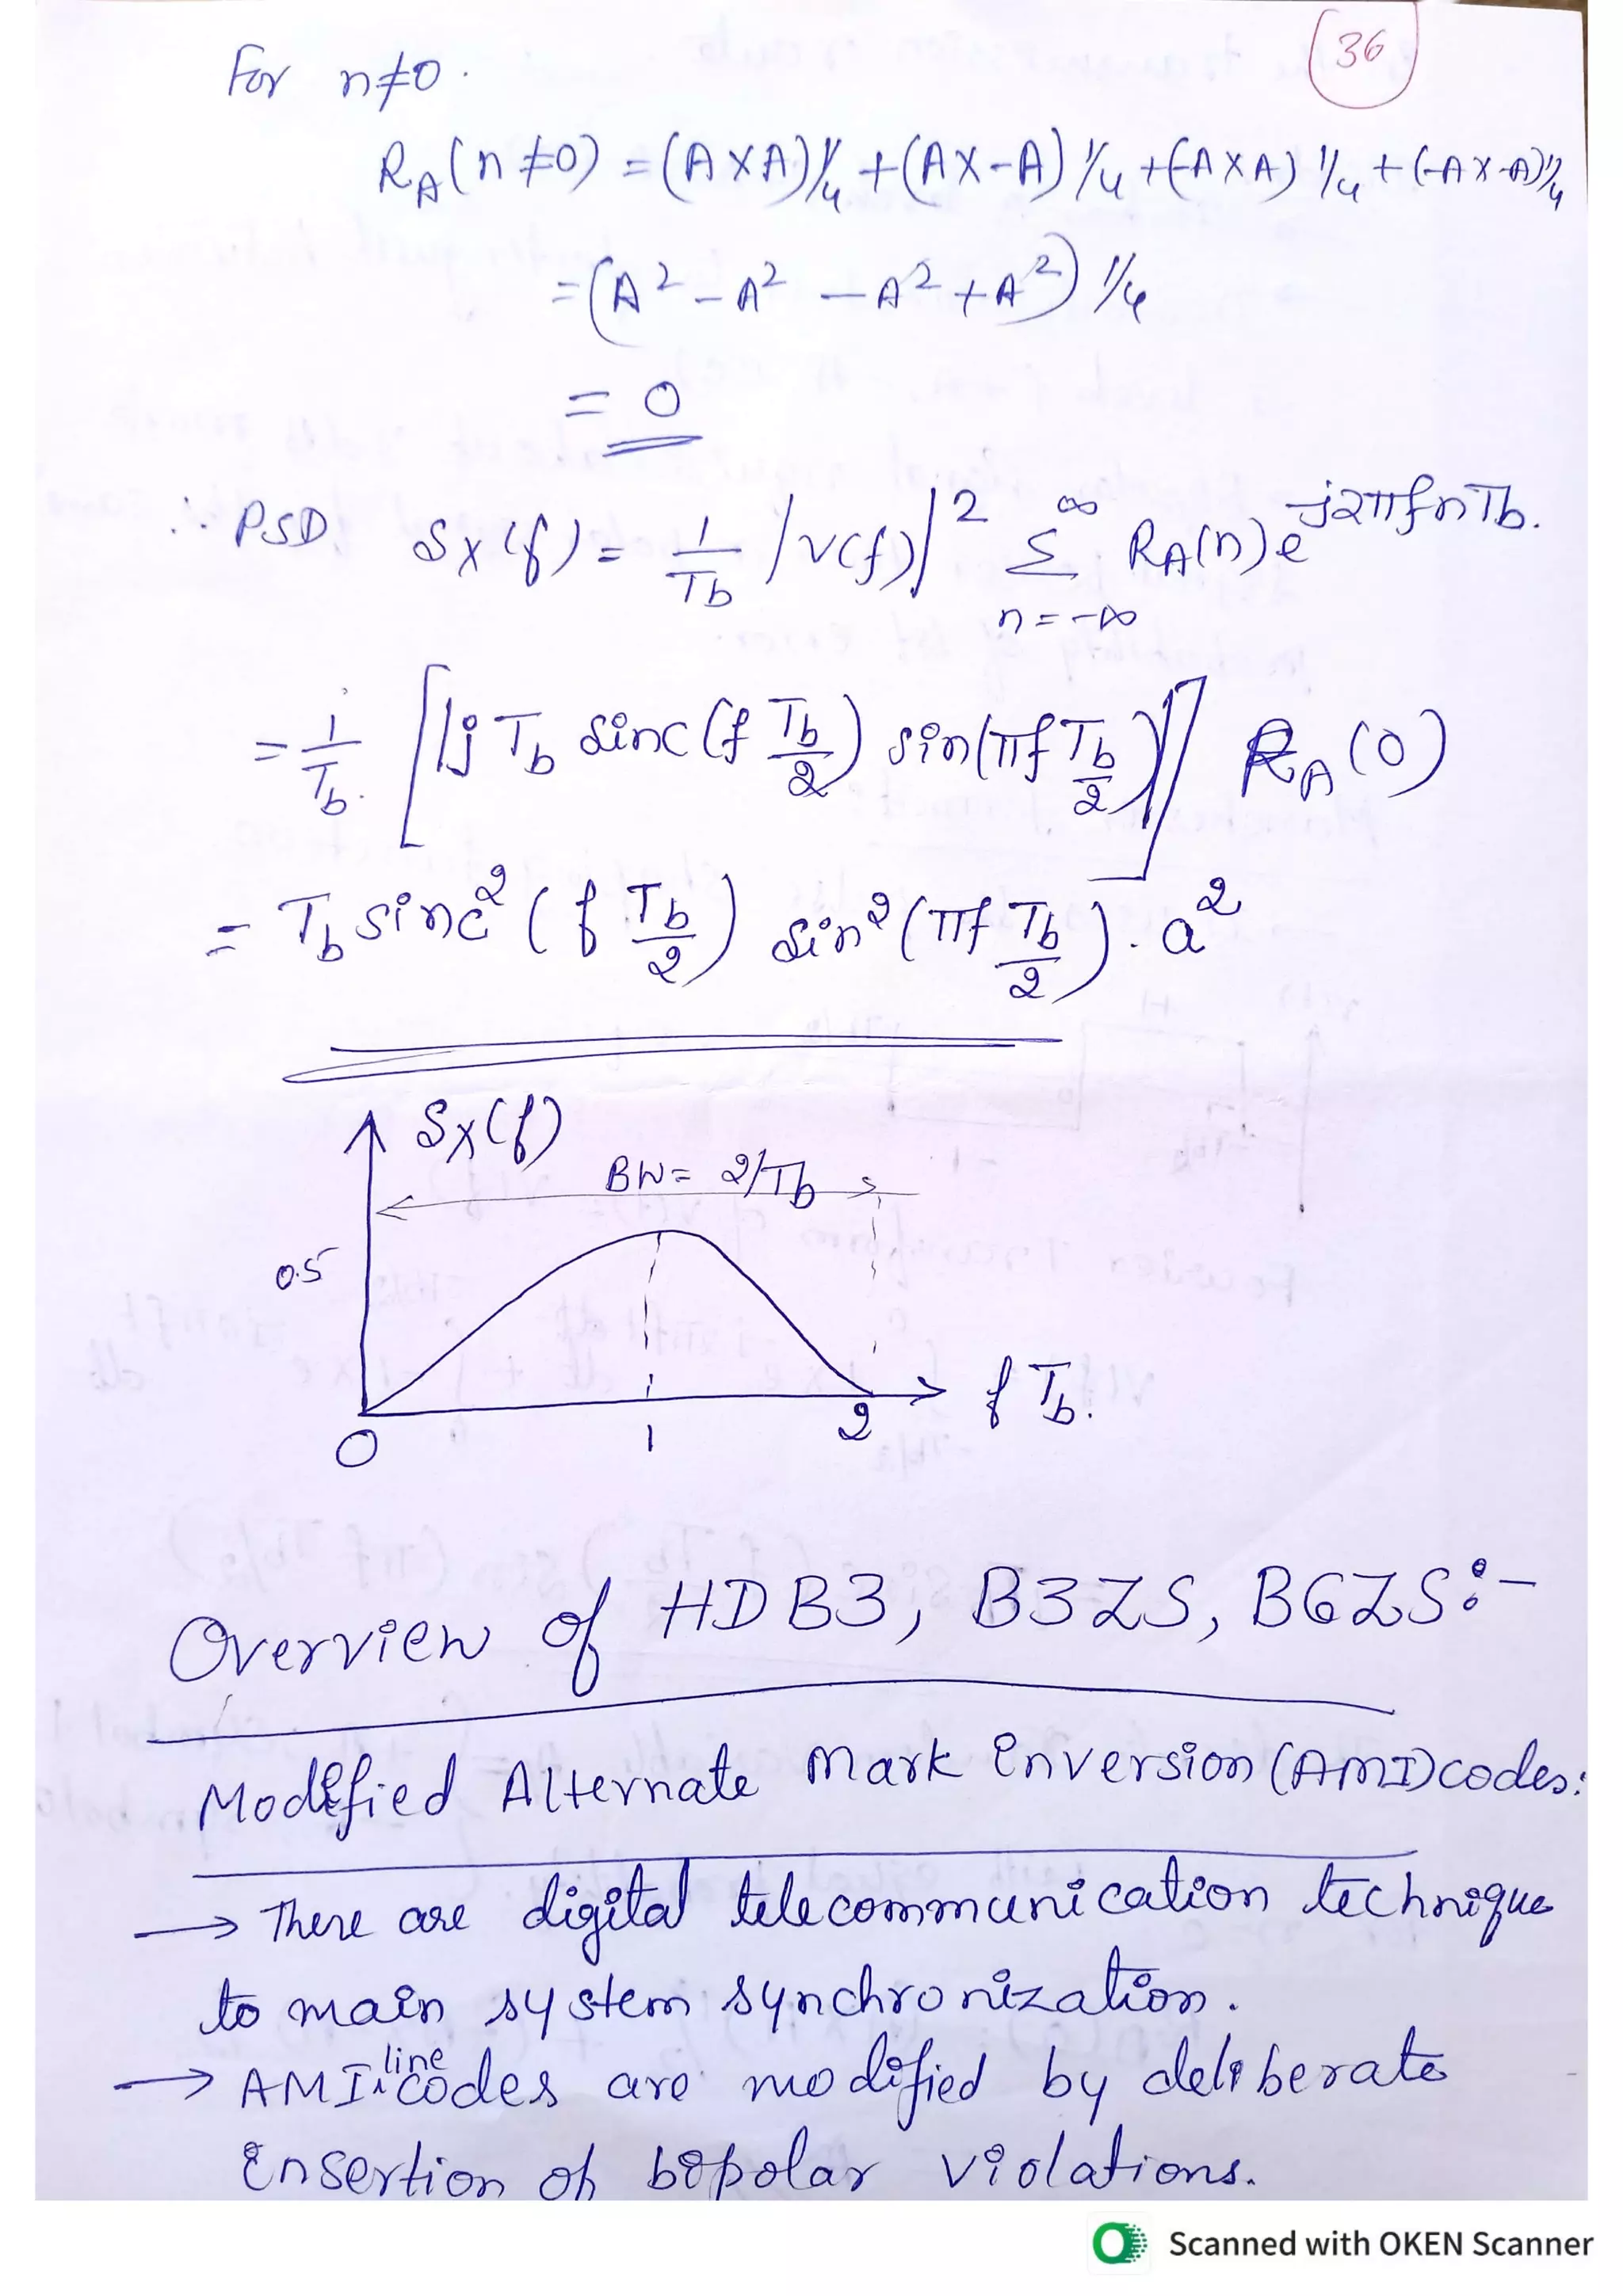 36
For n≠0.
R_A(n≠0) = (A×A)1/4 + (A×-A)1/4 + (-A×A)1/4 + (-A×-A)1/4
= (A² - A² - A² + A²) 1/4
= 0
∴ PSD S_X(f) = 1/T_b |V(f)|² ∑_{n=-∞}^{∞} R_A(n) e^{-j2πfnTb}.
= 1/T_b. [|j T_b sinc(f T_b/2) sin(πf T_b/2)|] R_A(0)
= T_b sinc²(f T_b/2) sin²(πf T_b/2). a²
S_X(f)
BW = 2/Tb
0.5
0 1 2 f T_b.
Overview of HDB3, B3ZS, B6ZS:-
Modified Alternate Mark Inversion (AMI) codes:
→ There are digital telecommunication technique
to main system synchronization.
→ AMI line codes are modified by deliberate
insertion of bipolar violations.
Scanned with OKEN Scanner